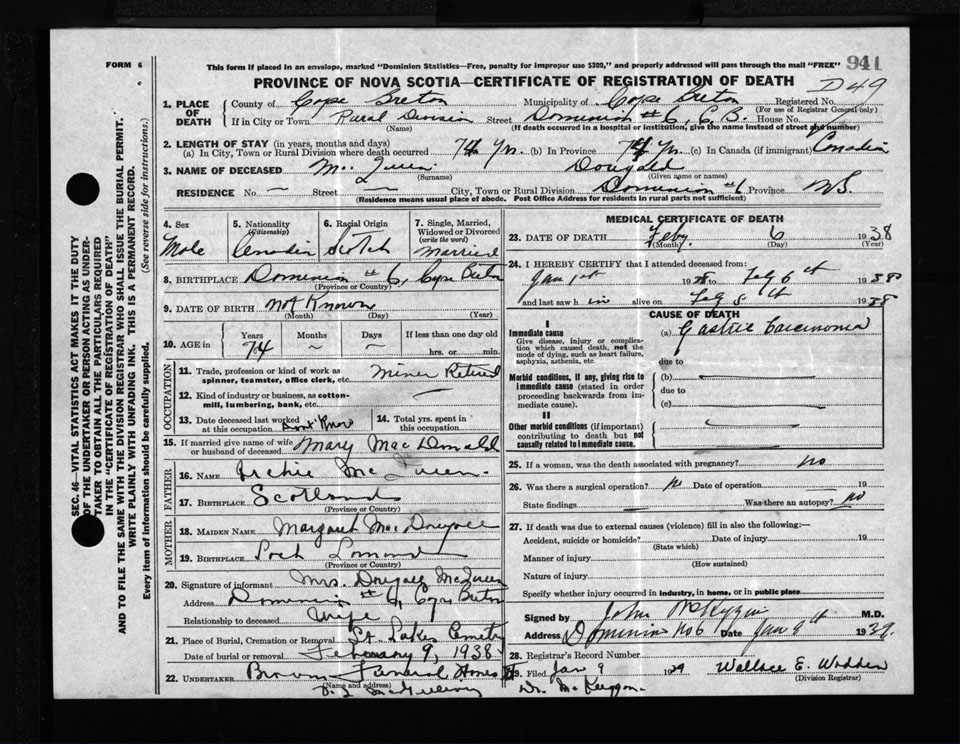 FORM 6
This form if placed in an envelope, marked "Dominion Statistics—Free, penalty for improper use $300," and properly addressed will pass through the mail "FREE"
941
PROVINCE OF NOVA SCOTIA—CERTIFICATE OF REGISTRATION OF DEATH
D49
1. PLACE OF DEATH
County of Cape Breton Municipality of Cape Breton Registered No.
(For use of Registrar General only)
If in City or Town Rural Division Street Dominion #6, C.B. House No.
(Name) (If death occurred in a hospital or institution, give the name instead of street and number)
2. LENGTH OF STAY (in years, months and days)
(a) In City, Town or Rural Division where death occurred 74 Yrs. (b) In Province 74 Yrs. (c) In Canada (if immigrant) Canadian
3. NAME OF DECEASED Mc Queen Dougald
(Surname) (Given name or names)
RESIDENCE No — Street — City, Town or Rural Division Dominion #6 Province N.S.
(Residence means usual place of abode. Post Office Address for residents in rural parts not sufficient)
4. Sex
Male
5. Nationality (Citizenship)
Canadian
6. Racial Origin
Scotch
7. Single, Married, Widowed or Divorced (write the word)
Married
8. BIRTHPLACE Dominion #6, Cape Breton
(Province or Country)
9. DATE OF BIRTH Not Known
(Month) (Day) (Year)
10. AGE in Years Months Days If less than one day old
74 ~ ~ hrs. or min.
OCCUPATION
11. Trade, profession or kind of work as spinner, teamster, office clerk, etc. Miner Retired
12. Kind of industry or business, as cotton-mill, lumbering, bank, etc. —
13. Date deceased last worked at this occupation Dont Know
14. Total yrs. spent in this occupation
15. If married give name of wife or husband of deceased Mary MacDonald
FATHER
16. NAME Archie McQueen
17. BIRTHPLACE Scotland
(Province or Country)
MOTHER
18. MAIDEN NAME Margaret MacDougall
19. BIRTHPLACE Loch Lomond
(Province or Country)
20. Signature of informant Mrs. Dougall McQueen
Address Dominion #6, Cape Breton
Relationship to deceased Wife
21. Place of Burial, Cremation or Removal St. Lukes Cemetery
Date of burial or removal February 9, 1938
22. UNDERTAKER Brown Funeral Home
MEDICAL CERTIFICATE OF DEATH
23. DATE OF DEATH Feby. 6 1938
(Month) (Day) (Year)
24. I HEREBY CERTIFY that I attended deceased from:
Jan 1st 1938 to Feb 6th 1938
and last saw him alive on Feb 5th 1938
CAUSE OF DEATH
I
Immediate cause
Give disease, injury or complication which caused death, not the mode of dying, such as heart failure, asphyxia, asthenia, etc.
(a) Gastric Carcinoma
due to
Morbid conditions, if any, giving rise to immediate cause (stated in order proceeding backwards from immediate cause).
(b)
due to
(c)
II
Other morbid conditions (if important) contributing to death but not causally related to immediate cause.
25. If a woman, was the death associated with pregnancy? no
26. Was there a surgical operation? no Date of operation 19
State findings Was there an autopsy? no
27. If death was due to external causes (violence) fill in also the following:—
Accident, suicide or homicide? Date of injury 19
(State which)
Manner of injury
(How sustained)
Nature of injury
Specify whether injury occurred in industry, in home, or in public place
Signed by John McKeggan M.D.
Address Dominion No 6 Date Jan 9th 1939.
28. Registrar's Record Number
29. Filed Jan 9 1939 Wallace E. Wadden
(Division Registrar)
Dr. McKeggan
SEC. 46—VITAL STATISTICS ACT MAKES IT THE DUTY
OF THE UNDERTAKER OR PERSON ACTING AS UNDERTAKER TO OBTAIN ALL THE PARTICULARS REQUIRED
IN THE "CERTIFICATE OF REGISTRATION OF DEATH"
AND TO FILE THE SAME WITH THE DIVISION REGISTRAR WHO SHALL ISSUE THE BURIAL PERMIT.
WRITE PLAINLY WITH UNFADING INK. THIS IS A PERMANENT RECORD.
Every item of information should be carefully supplied. (See reverse side for instructions.)